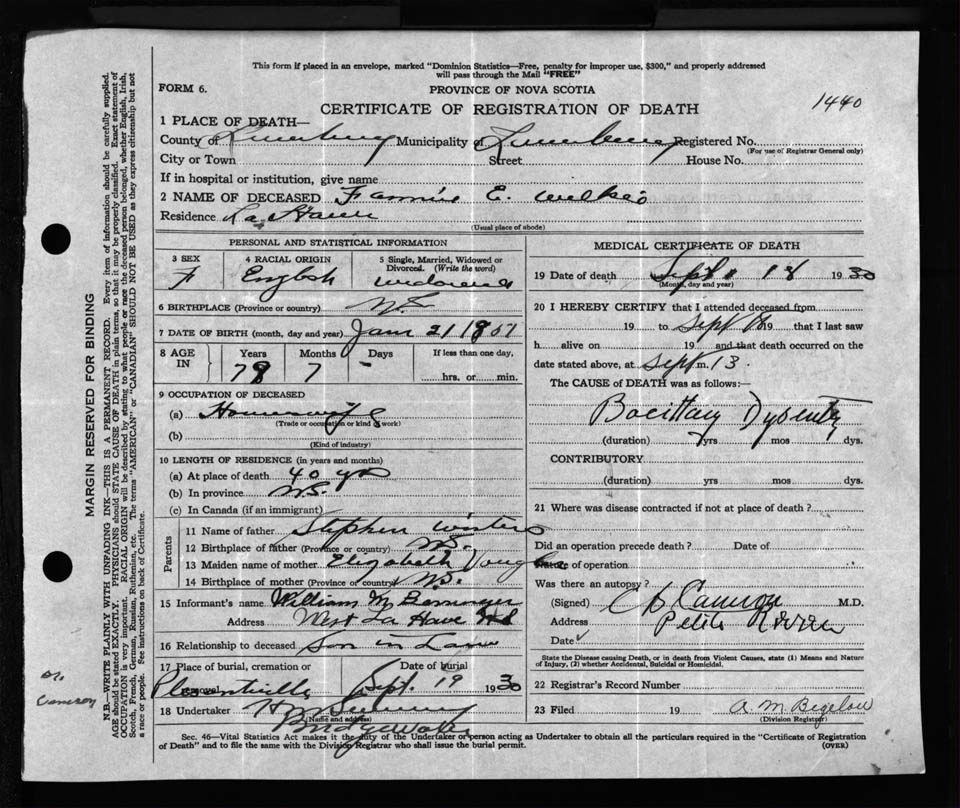 This form if placed in an envelope, marked "Dominion Statistics—Free, penalty for improper use, $300," and properly addressed
will pass through the Mail "FREE"
FORM 6.
PROVINCE OF NOVA SCOTIA
CERTIFICATE OF REGISTRATION OF DEATH
1440
1 PLACE OF DEATH—
County of Lunenburg Municipality of Lunenburg Registered No.
(For use of Registrar General only)
City or Town Street House No.
If in hospital or institution, give name
2 NAME OF DECEASED Fannie E.
Residence La Have
(Usual place of abode)
PERSONAL AND STATISTICAL INFORMATION
3 SEX F
4 RACIAL ORIGIN English
5 Single, Married, Widowed or Divorced. (Write the word) widowed
6 BIRTHPLACE (Province or country) N.S.
7 DATE OF BIRTH (month, day and year) Jan 21 18
8 AGE IN Years Months Days If less than one day,
7 – hrs. or min.
9 OCCUPATION OF DECEASED
(a) Housewife
(Trade or occupation or kind of work)
(b)
(Kind of industry)
10 LENGTH OF RESIDENCE (in years and months)
(a) At place of death 40 yrs
(b) In province N.S.
(c) In Canada (if an immigrant)
Parents
11 Name of father Stephen Winters
12 Birthplace of father (Province or country) N.S.
13 Maiden name of mother Elizabeth
14 Birthplace of mother (Province or country) N.S.
15 Informant's name William M
Address West La Have N S
16 Relationship to deceased Son in Law
17 Place of burial, cremation or removal Pleasantville
Date of burial Sept. 19 1930
18 Undertaker H
(Name and address)
Bridgewater
MEDICAL CERTIFICATE OF DEATH
19 Date of death Sept 18 1930
(Month, day and year)
20 I HEREBY CERTIFY that I attended deceased from
19 to Sept 19 that I last saw
h alive on 19 and that death occurred on the
date stated above, at Sept m. 13.
The CAUSE of DEATH was as follows:—
Bacillary Dysentry
(duration) yrs mos dys.
CONTRIBUTORY
(duration) yrs mos dys.
21 Where was disease contracted if not at place of death?
Did an operation precede death? Date of
Nature of operation
Was there an autopsy?
(Signed) Cameron M.D.
Address Petite Riviere
Date
State the Disease causing Death, or in death from Violent Causes, state (1) Means and Nature
of Injury, (2) whether Accidental, Suicidal or Homicidal.
22 Registrar's Record Number
23 Filed 19 A. M. Bigelow
(Division Registrar)
Sec. 46—Vital Statistics Act makes it the duty of the Undertaker or person acting as Undertaker to obtain all the particulars required in the "Certificate of Registration
of Death" and to file the same with the Division Registrar who shall issue the burial permit. (OVER)
MARGIN RESERVED FOR BINDING
N.B.—WRITE PLAINLY WITH UNFADING INK—THIS IS A PERMANENT RECORD. Every item of information should be carefully supplied.
AGE should be stated EXACTLY. PHYSICIANS should STATE CAUSE OF DEATH in plain terms, so that it may be properly classified. Exact statement of
OCCUPATION is very important. RACIAL ORIGIN will be described by stating to what people or race the deceased person belonged, whether English, Irish,
Scotch, French, German, Russian, Ruthenian, etc. The terms "AMERICAN" or "CANADIAN" SHOULD NOT BE USED as they express citizenship but not
a race or people. See instructions on back of Certificate.
Dr.
Cameron